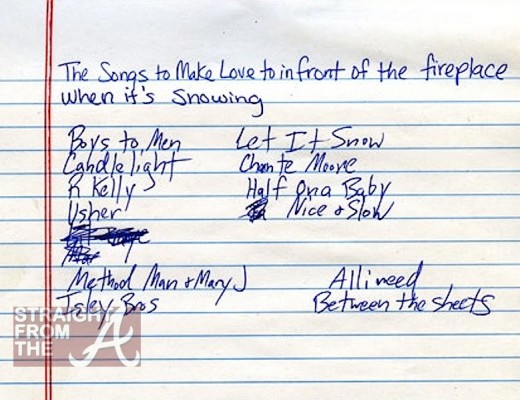 The Songs to Make Love to in front of the fireplace
when it's Snowing
Boys to Men Let It Snow
Candle light Chante Moore
R Kelly Half Ona Baby
Usher Nice & Slow
Method Man & Mary J All i need
Isley Bros Between the sheets
STRAIGHT
FROM
THE A